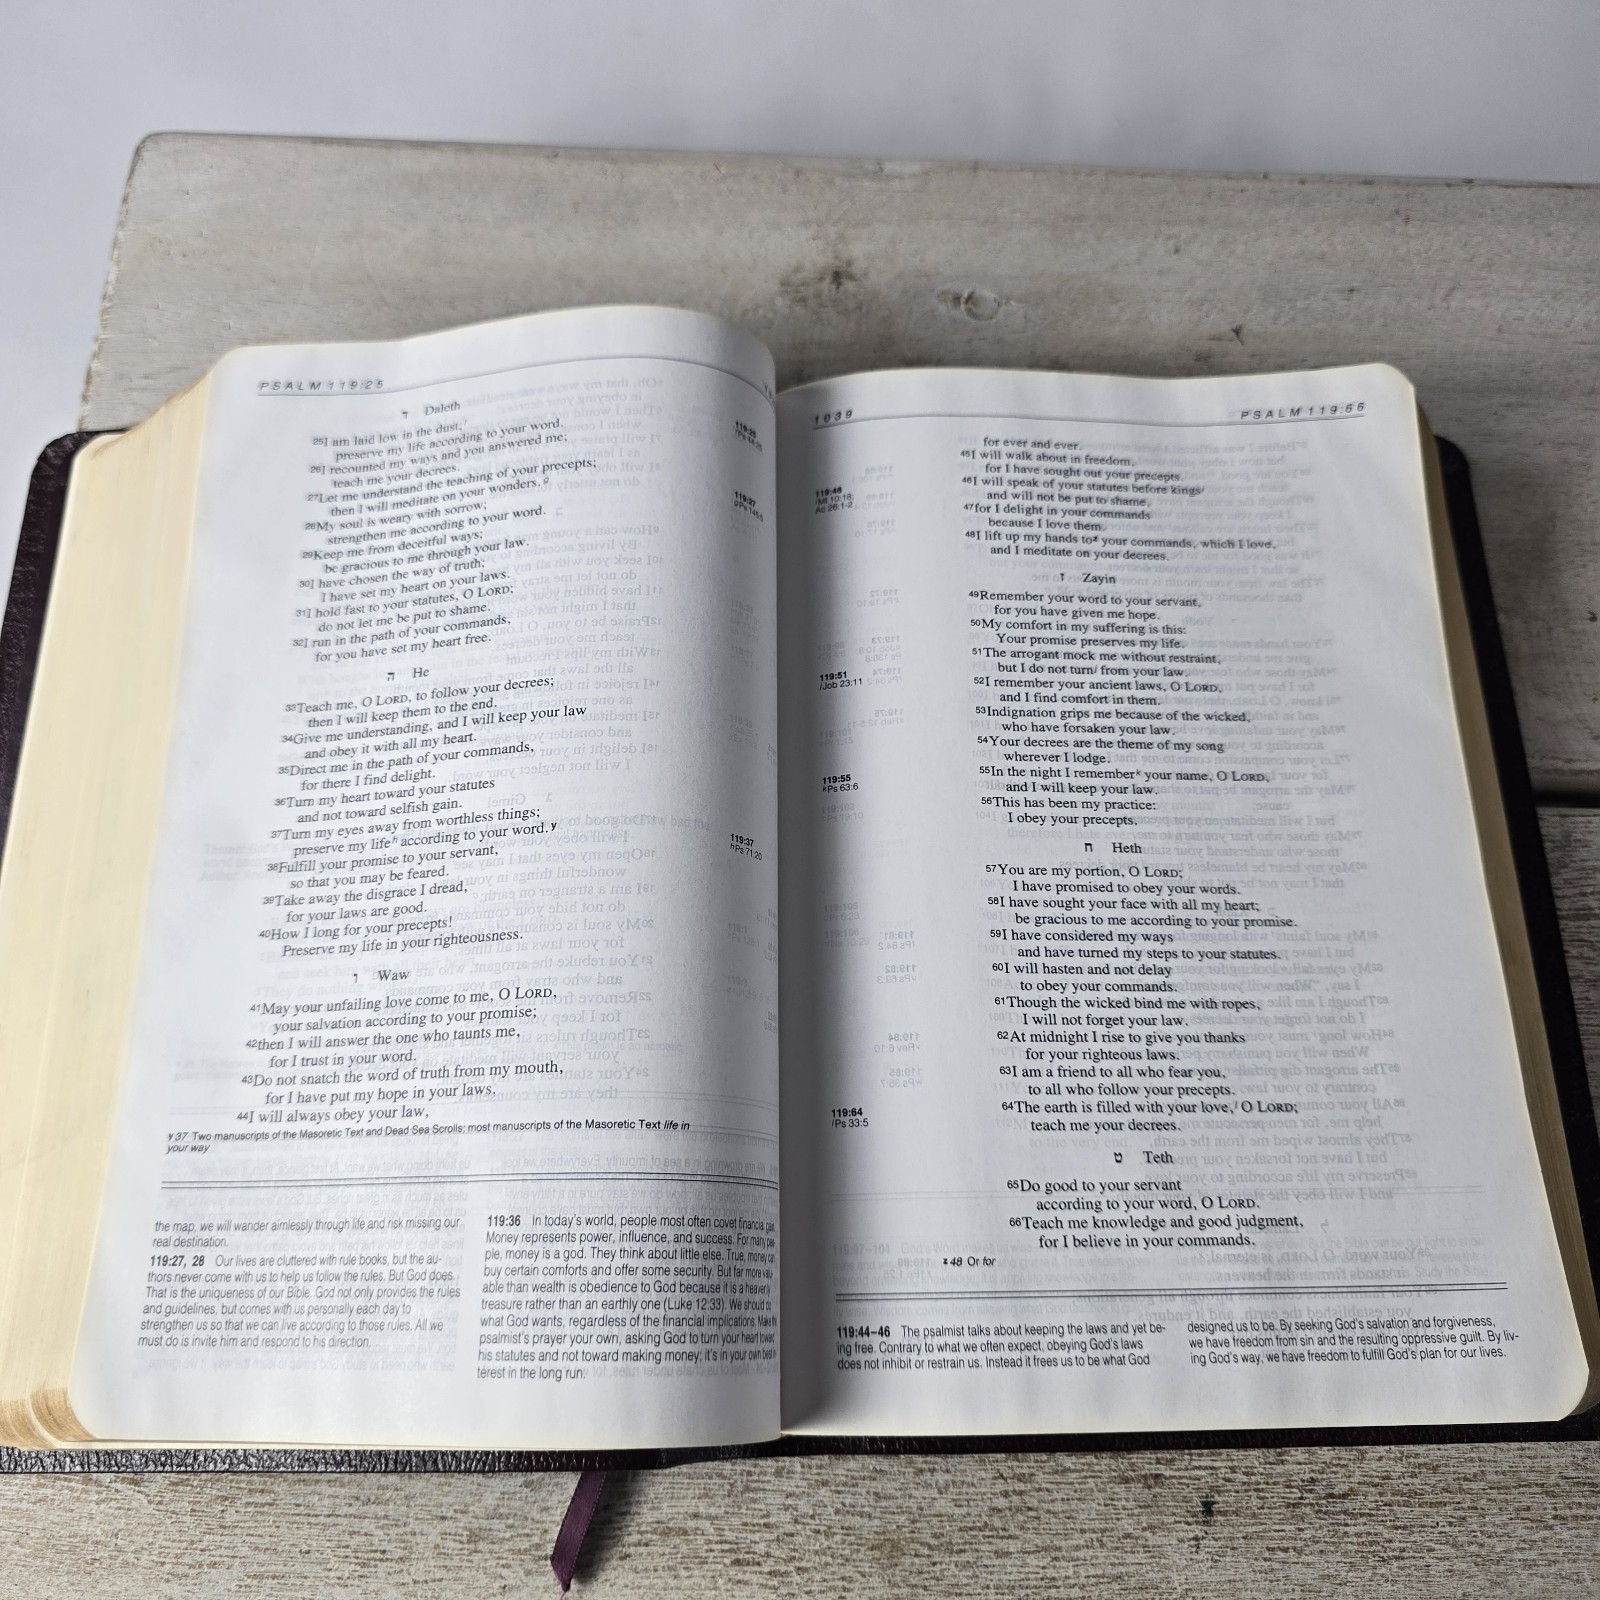 PSALM 119:25
ד Daleth
25I am laid low in the dust;
preserve my life according to your word.
26I recounted my ways and you answered me;
teach me your decrees.
27Let me understand the teaching of your precepts;
then I will meditate on your wonders. g
28My soul is weary with sorrow;
strengthen me according to your word.
29Keep me from deceitful ways;
be gracious to me through your law.
30I have chosen the way of truth;
I have set my heart on your laws.
31I hold fast to your statutes, O LORD;
do not let me be put to shame.
32I run in the path of your commands,
for you have set my heart free.
ה He
33Teach me, O LORD, to follow your decrees;
then I will keep them to the end.
34Give me understanding, and I will keep your law
and obey it with all my heart.
35Direct me in the path of your commands,
for there I find delight.
36Turn my heart toward your statutes
and not toward selfish gain.
37Turn my eyes away from worthless things;
preserve my life h according to your word. y
38Fulfill your promise to your servant,
so that you may be feared.
39Take away the disgrace I dread,
for your laws are good.
40How I long for your precepts!
Preserve my life in your righteousness.
ו Waw
41May your unfailing love come to me, O LORD,
your salvation according to your promise;
42then I will answer the one who taunts me,
for I trust in your word.
43Do not snatch the word of truth from my mouth,
for I have put my hope in your laws.
44I will always obey your law,
119:25
119:27
119:37
hPs 71:20
y 37 Two manuscripts of the Masoretic Text and Dead Sea Scrolls; most manuscripts of the Masoretic Text life in
your way
the map, we will wander aimlessly through life and risk missing our
real destination.
119:27, 28 Our lives are cluttered with rule books, but the au-
thors never come with us to help us follow the rules. But God does.
That is the uniqueness of our Bible. God not only provides the rules
and guidelines, but comes with us personally each day to
strengthen us so that we can live according to those rules. All we
must do is invite him and respond to his direction.
119:36 In today's world, people most often covet financial gain.
Money represents power, influence, and success. For many peo-
ple, money is a god. They think about little else. True, money can
buy certain comforts and offer some security. But far more valu-
able than wealth is obedience to God because it is a heavenly
treasure rather than an earthly one (Luke 12:33). We should do
what God wants, regardless of the financial implications. Make the
psalmist's prayer your own, asking God to turn your heart toward
his statutes and not toward making money; it's in your own best in-
terest in the long run.
1039
PSALM 119:66
for ever and ever.
45I will walk about in freedom,
for I have sought out your precepts.
46I will speak of your statutes before kings i
and will not be put to shame,
47for I delight in your commands
because I love them.
48I lift up my hands to z your commands, which I love,
and I meditate on your decrees.
ז Zayin
49Remember your word to your servant,
for you have given me hope.
50My comfort in my suffering is this:
Your promise preserves my life.
51The arrogant mock me without restraint,
but I do not turn j from your law.
52I remember your ancient laws, O LORD,
and I find comfort in them.
53Indignation grips me because of the wicked,
who have forsaken your law.
54Your decrees are the theme of my song
wherever I lodge.
55In the night I remember k your name, O LORD,
and I will keep your law.
56This has been my practice:
I obey your precepts.
ח Heth
57You are my portion, O LORD;
I have promised to obey your words.
58I have sought your face with all my heart;
be gracious to me according to your promise.
59I have considered my ways
and have turned my steps to your statutes.
60I will hasten and not delay
to obey your commands.
61Though the wicked bind me with ropes,
I will not forget your law.
62At midnight I rise to give you thanks
for your righteous laws.
63I am a friend to all who fear you,
to all who follow your precepts.
64The earth is filled with your love, l O LORD;
teach me your decrees.
ט Teth
65Do good to your servant
according to your word, O LORD.
66Teach me knowledge and good judgment,
for I believe in your commands.
119:46
iMt 10:18;
Ac 26:1-2
119:51
jJob 23:11
119:55
kPs 63:6
119:64
lPs 33:5
z 48 Or for
119:44–46 The psalmist talks about keeping the laws and yet be-
ing free. Contrary to what we often expect, obeying God's laws
does not inhibit or restrain us. Instead it frees us to be what God
designed us to be. By seeking God's salvation and forgiveness,
we have freedom from sin and the resulting oppressive guilt. By liv-
ing God's way, we have freedom to fulfill God's plan for our lives.